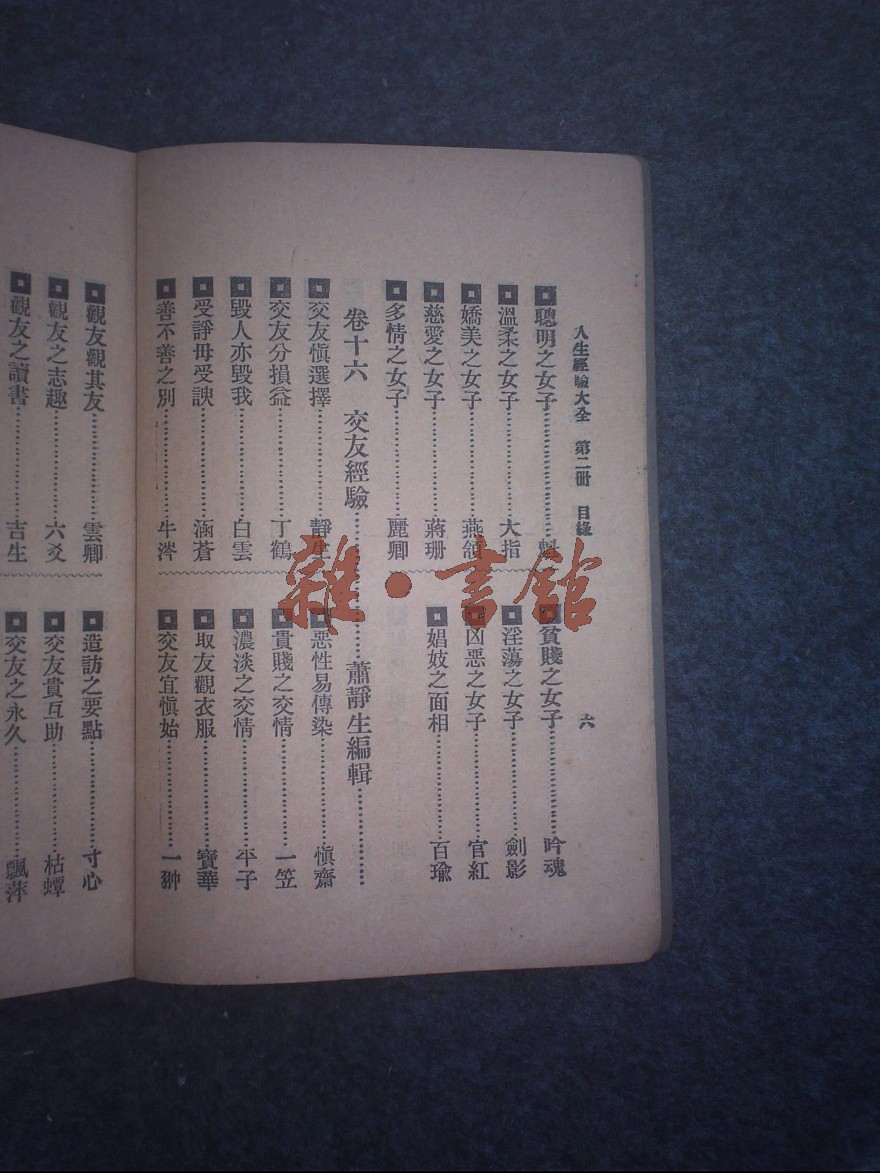 人生經驗大全 第二冊 目錄
六
聰明之女子
溫柔之女子 大指
嬌美之女子 燕頷
慈愛之女子 蔣珊
多情之女子 麗卿
貧賤之女子 吟魂
淫蕩之女子 劍影
凶惡之女子 官紅
娼妓之面相 百瑜
卷十六 交友經驗 蕭靜生編輯
交友慎選擇 靜生
交友分損益 丁鶴
毀人亦毀我 白雲
受諍毋受諛 涵蒼
善不善之別 牛涔
惡性易傳染 慎齋
貴賤之交情 一笠
濃淡之交情 平子
取友觀衣服 寶華
交友宜慎始 一翀
觀友觀其友 雲卿
觀友之志趣 六爻
觀友之讀書 吉生
造訪之要點 寸心
交友貴互助 枯蟫
交友之永久 飄萍
雜·書館